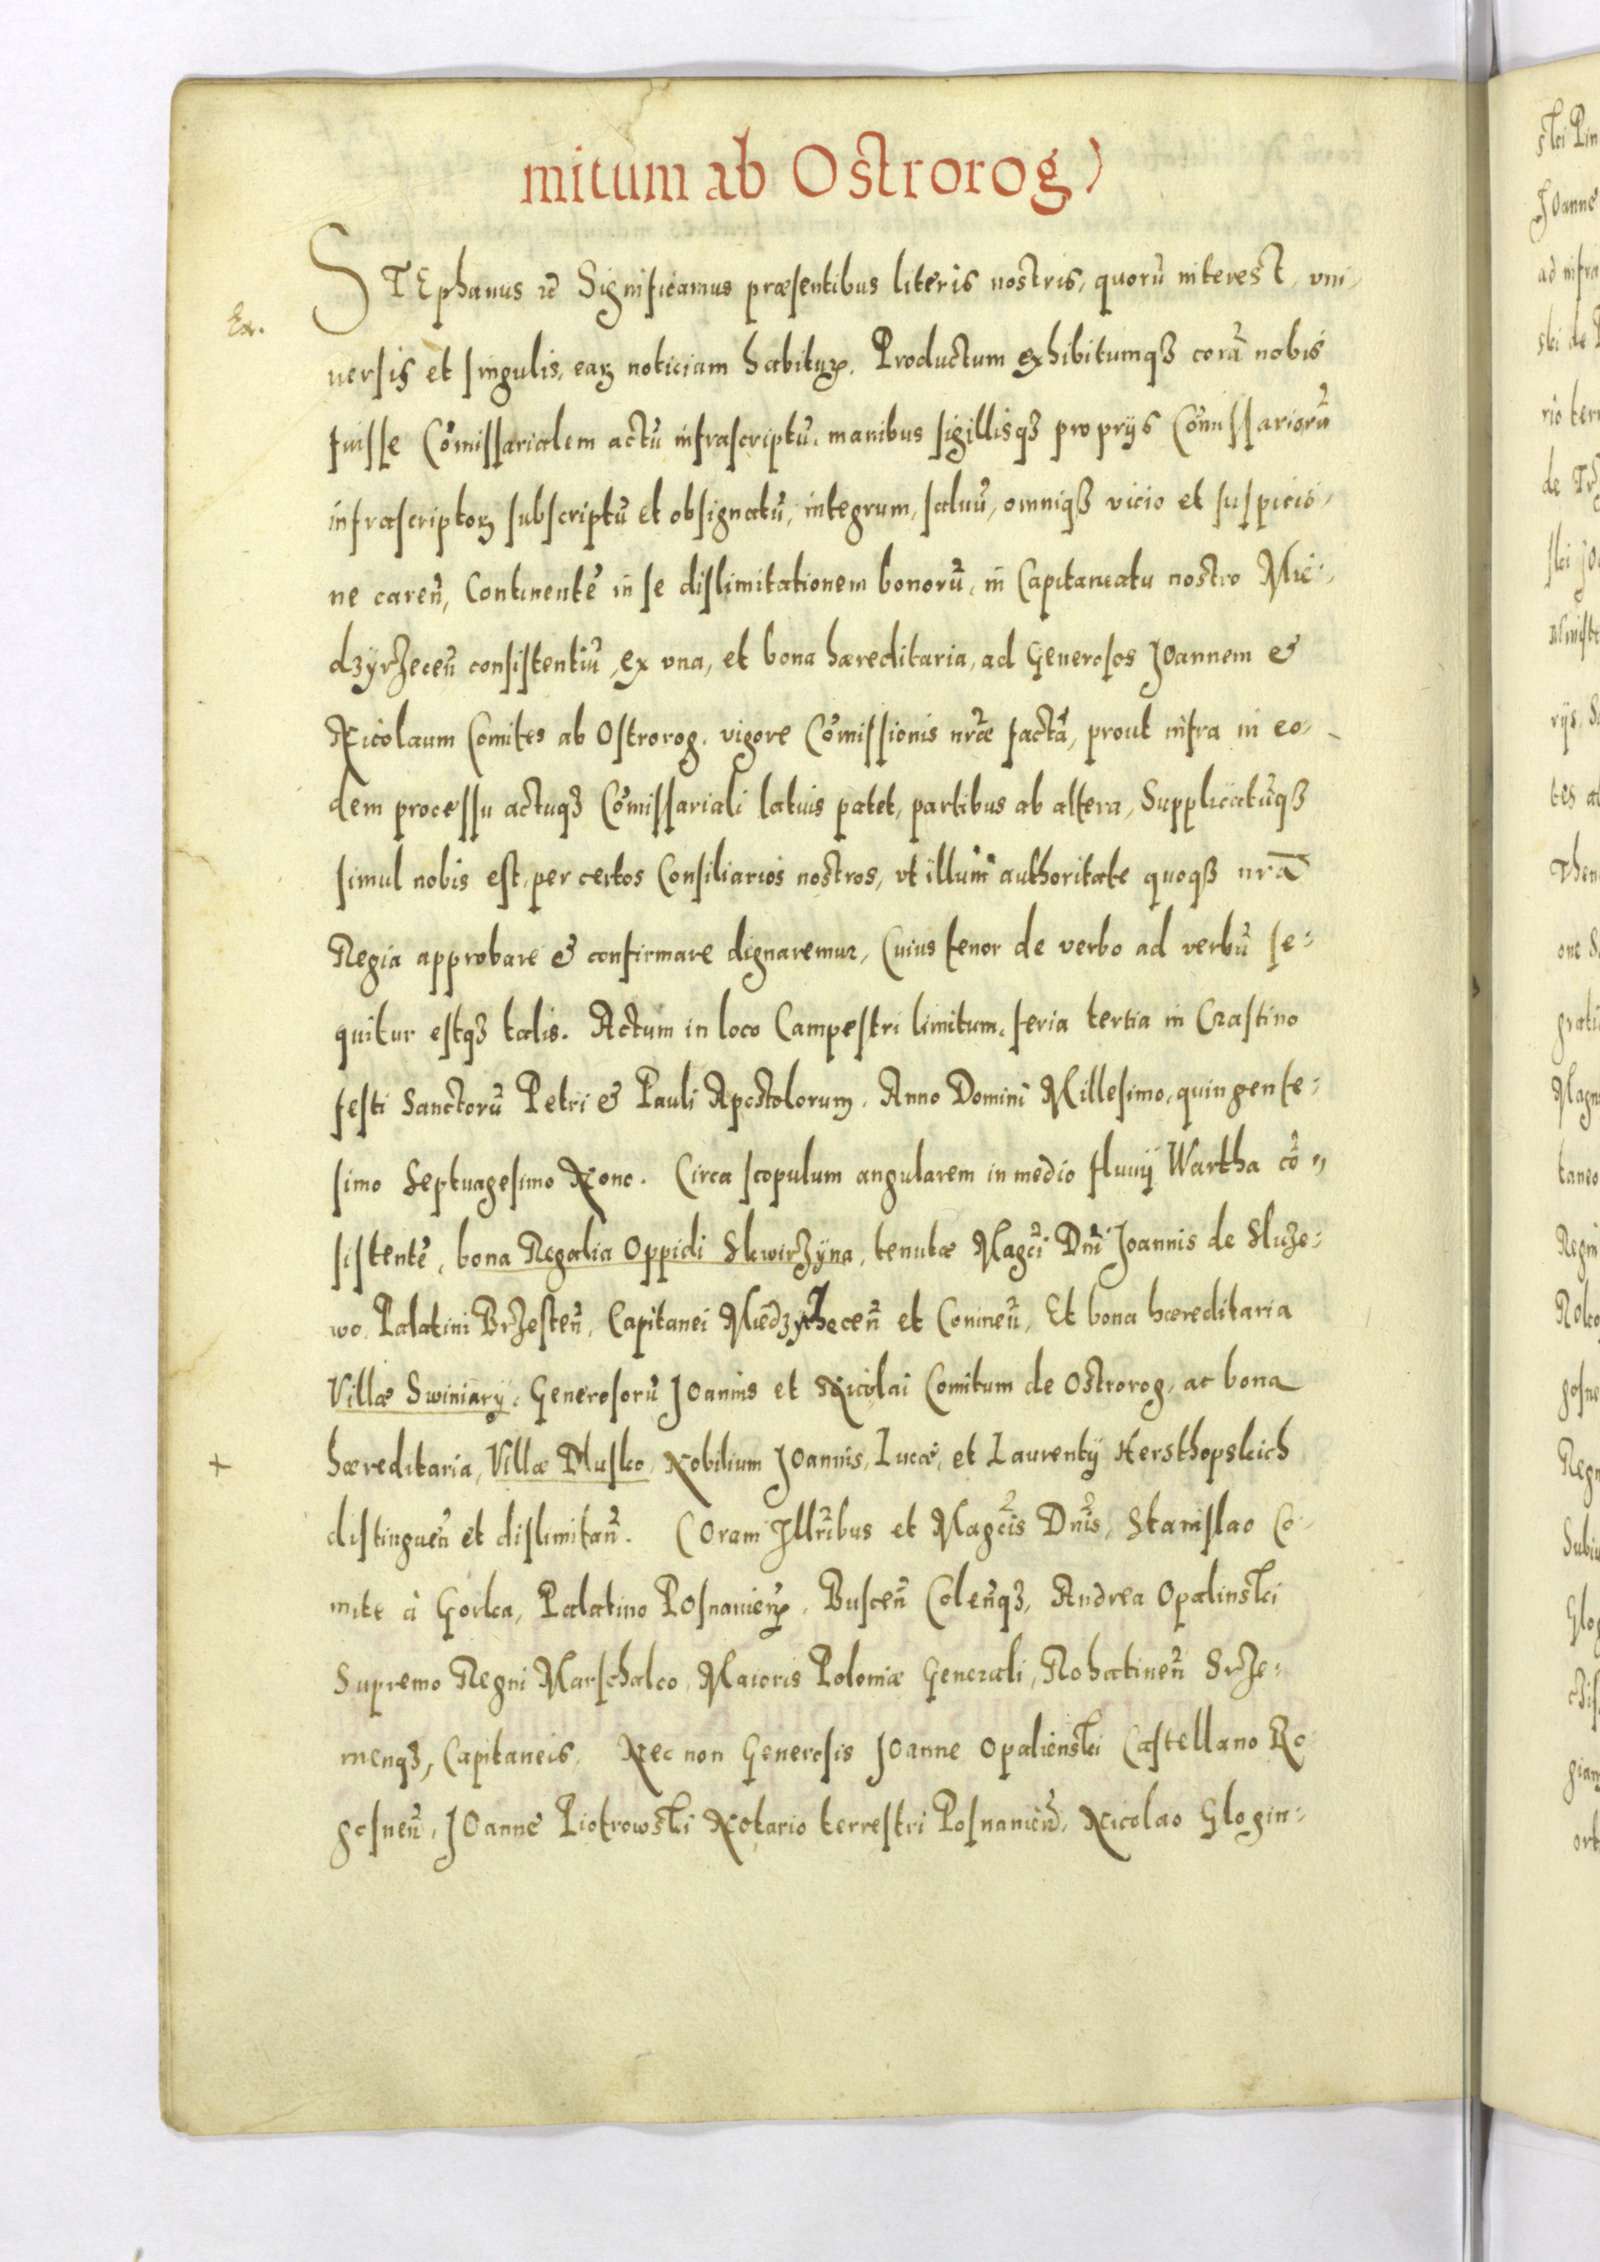 mitum ab Ostrorog)
STEphanus etc Significamus præsentibus literis nostris, quorū interest, vni-
Ex.
uersis et singulis, earꝫ noticiam habituꝝ. Productum exhibitumqꝫ corā nobis
fuisse Cōmissarialem actū infrascriptū, manibus sigillisqꝫ proprijs Cōmissariorū
infrascriptoꝝ subscriptū et obsignatū, integrum, saluū, omniqꝫ vicio et suspicio-
ne careñ, Continentē in se dislimitationem bonorū, in Capitaneatu nostro Mie-
dzÿrzeceñ consistentiū, ex vna, et bona hæreditaria, ad Generosos Joannem &
Nicolaum Comites ab Ostrorog, vigore Cōmissionis nr̄æ factā, prout infra in eo-
dem processu actuqꝫ Cōmissariali latius patet, partibus ab altera, Supplicatūqꝫ
simul nobis est, per certos Consiliarios nostros, vt illum authoritate quoqꝫ nr̄a
Regia approbare & confirmare dignaremur, Cuius tenor de verbo ad verbū se-
quitur estqꝫ talis. Actum in loco Campestri limitum, feria tertia in Crastino
festi Sanctorū Petri & Pauli Apostolorum, Anno Domini Millesimo, quingente-
simo Septuagesimo Nono. Circa scopulum angularem in medio fluuij Wartha cō-
sistentē, bona Regalia Oppidi Skwirzÿna, tenutæ Magci Dni Joannis de Sluze-
wo, Palatini Brzesteñ, Capitanei Miedzyrzeceñ et Conineñ, Et bona hæreditaria
Villæ Swiniarÿ, Generosorū Joannis et Nicolai Comitum de Ostrorog, ac bona
+ hæreditaria, Villæ Murko, Nobilium Joannis, Lucæ, et Laurentij Hersthopskich
distingueñ et dislimitañ. COram Illribus et Magcis Dnis, Stanislao Co-
mite à Gorka, Palatino Posnanieñ, Busceñ Coleñqꝫ, Andrea Opalinski
Supremo Regni Marschalco, Maioris Poloniæ Generali, Rohatineñ Srze-
menqꝫ, Capitaneis, Nec non Generosis Joanne Opalienski Castellano Ro-
gosneñ, Joanne Piotrowski Notario terrestri Posnanieñ, Nicolao Glogin-